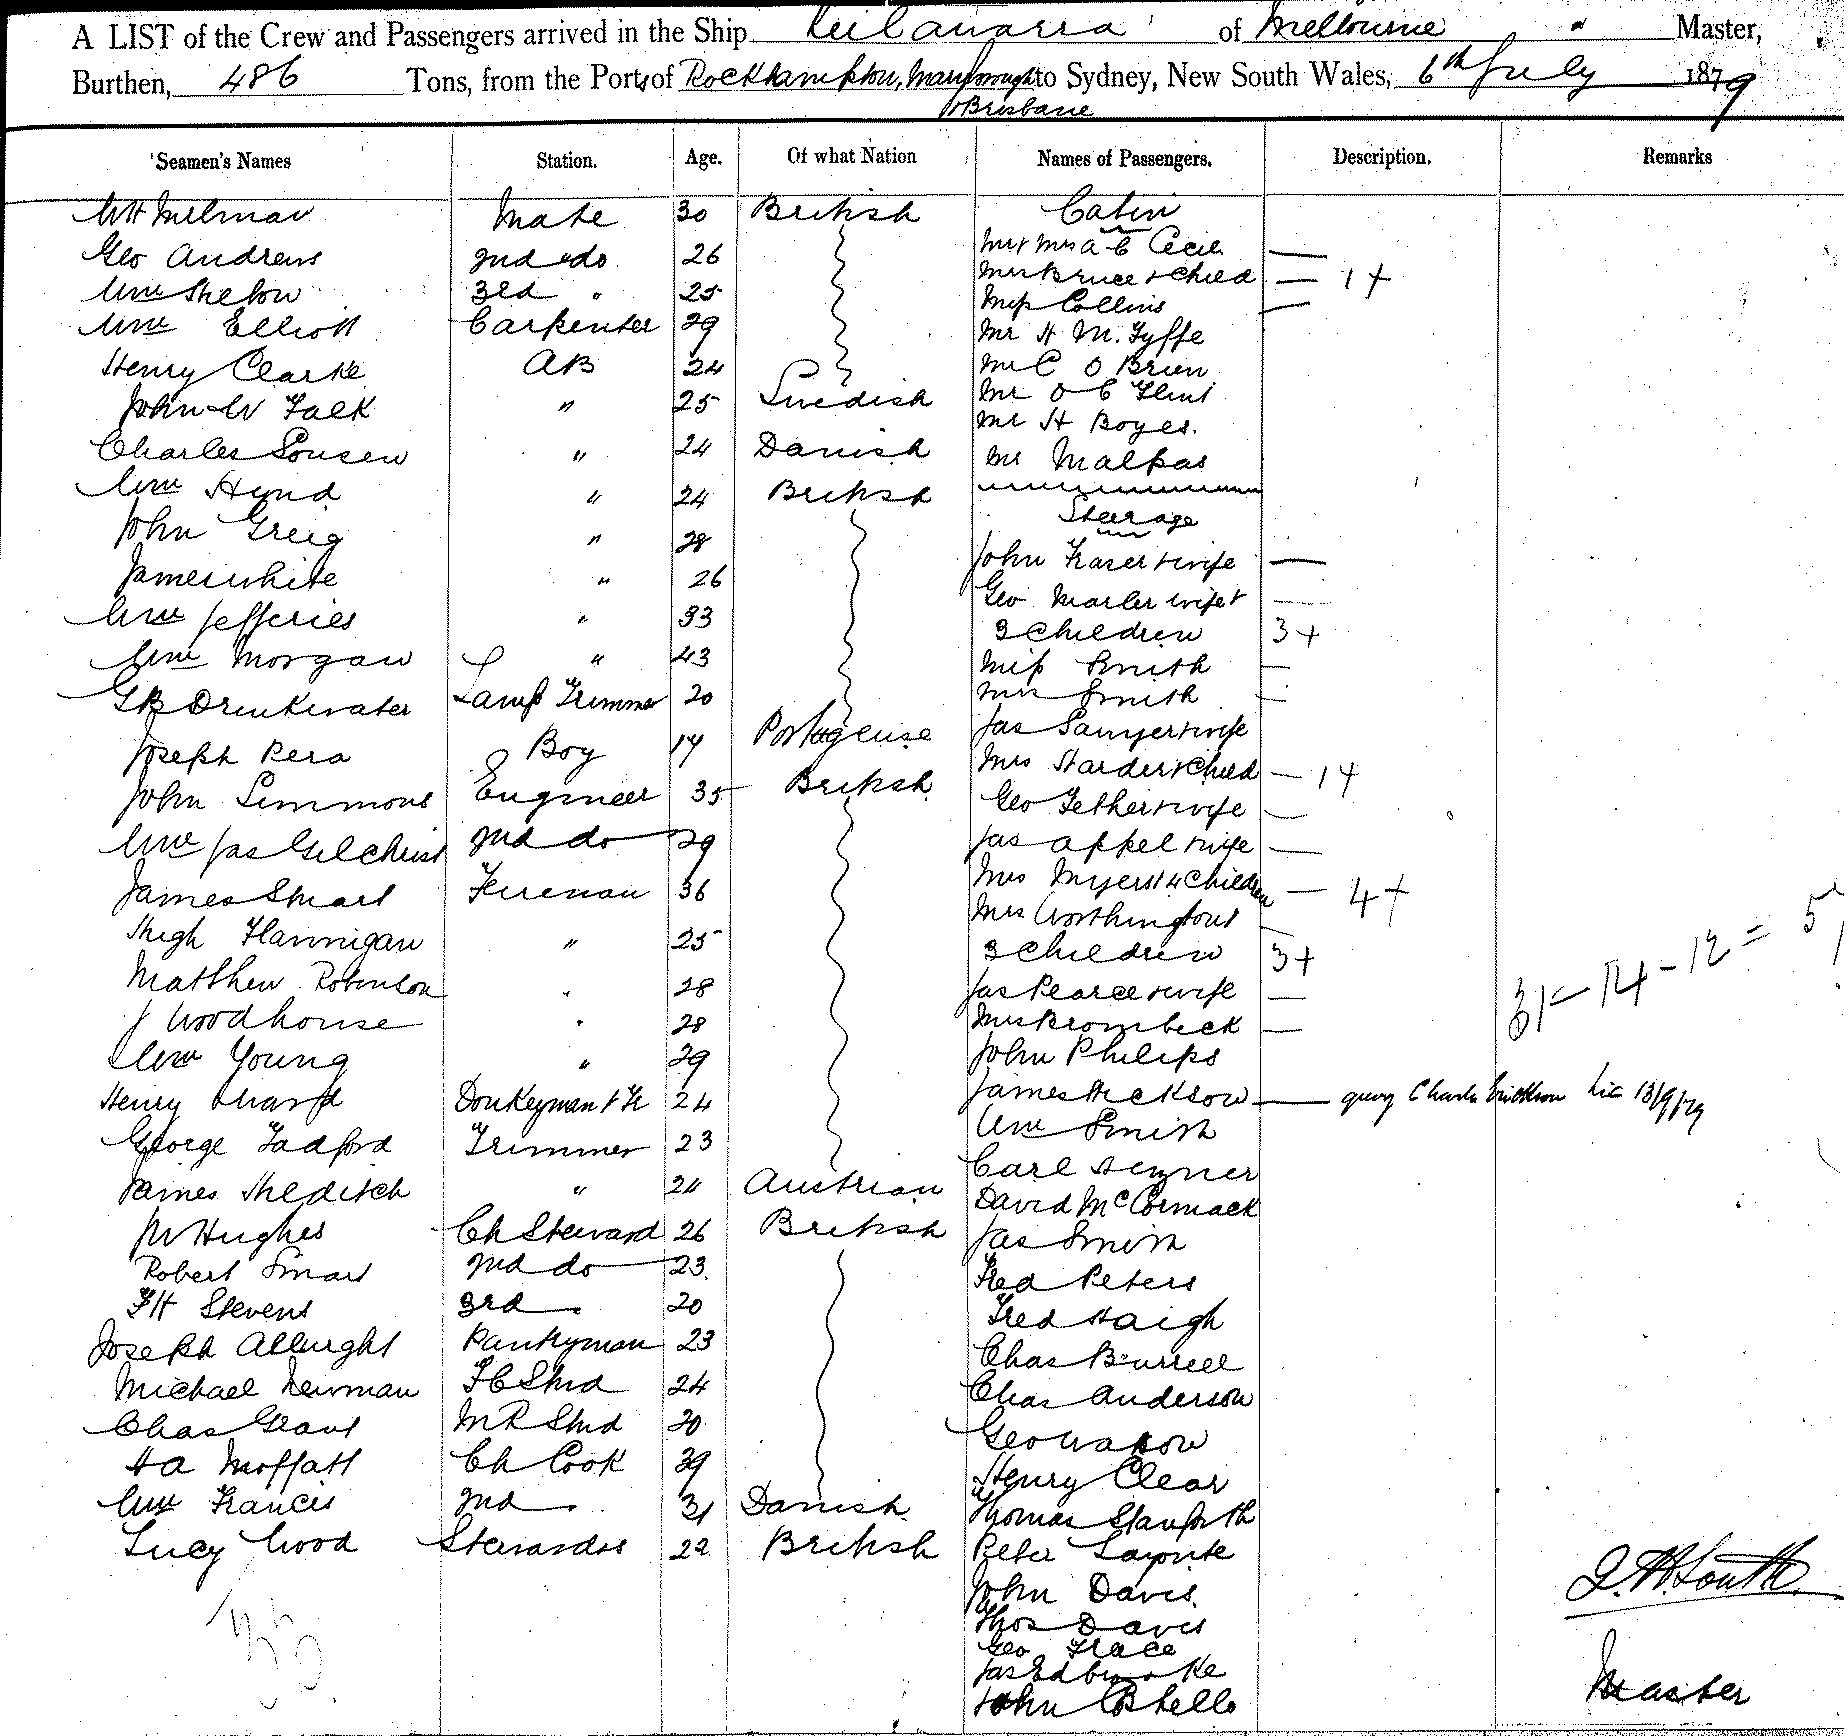 A LIST of the Crew and Passengers arrived in the Ship Keilawarra of Melbourne " Master,
Burthen, 486 Tons, from the Ports of Rockhampton, Maryborough to Sydney, New South Wales, 6th July 1879
& Brisbane
Seamen's Names Station. Age. Of what Nation Names of Passengers. Description. Remarks
WH Milman Mate 30 British Cabin
Geo Andrews 2nd do 26 Mr & Mrs A C Cecil —
Wm Skelow 3rd " 25 Mrs Bruce & Child — 1 +
Wm Elliott Carpenter 29 Miss Collins —
Henry Clarke AB 24 Mr H M. Fyffe
John W Falk " 25 Swedish Mr C O Brien
Charles Sousen " 24 Danish Mr O C Flint
Wm Hynd " 24 British Mr H Boyes.
John Greig " 28 Mr Malpas
James White " 26 Steerage
Wm Jefferies " 33 John Fraser & wife —
Wm Morgan " 43 Geo Marler wife & —
GB Drinkwater Lamp Trimmer 20 3 Children 3 +
Joseph Pera Boy 17 Portugeuse Miss Smith —
John Simmons Engineer 35 British Mrs Smith —
Wm Jas Gilchrist 2nd do 29 Jas Sawyer & wife
James Stuart Fireman 36 Mrs Harder & Child — 1 +
Hugh Flannigan " 25 Geo Fether & wife —
Matthew Robinson " 28 Jas Appel & wife —
J Woodhouse " 28 Mrs Myers & 4 Children — 4 +
Wm Young " 29 Mrs Worthington &
Henry Donkeyman & Fr 24 3 Children 3 +
George Tadford Trimmer 23 Jas Pearce & wife —
James Shlditch " 24 Austrian Mrs Brombeck —
31 — 14 — 12 = 5
W Hughes Ch Steward 26 British John Philips
Robert Smart 2nd do 23 James Hickson — query Charles Erickson 13/9/79
FH Stevens 3rd " 20 Wm Smith
Joseph Allright Pantryman 23 Carl
Michael Newman FC Stwd 24 David McCormack
Chas Grant MR Stwd 20 Jas Smith
HA Moffatt Ch Cook 39 Fred Peters
Wm Francis 2nd " 31 Danish Fred Haigh
Lucy Wood Stewardss 22 British Chas Burrell
Chas Anderson
Geo Watson
Henry Clear
Thomas Stanforth
Peter Laporte
John Davis.
Thos Davis
Geo Grace
Jas Edbrooke
John Costello
J. H. South
Master